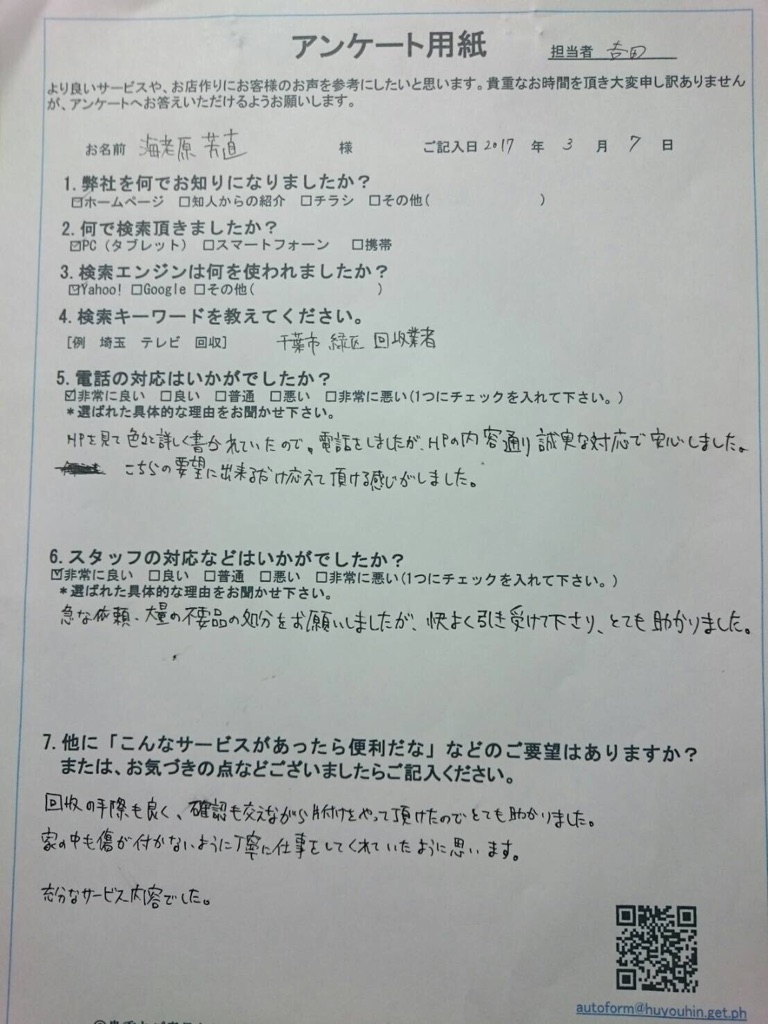 アンケート用紙
担当者 吉田
より良いサービスや、お店作りにお客様のお声を参考にしたいと思います。貴重なお時間を頂き大変申し訳ありません
が、アンケートへお答えいただけるようお願いします。
お名前 海老原 芳直 様 ご記入日 2017 年 3 月 7 日
1.弊社を何でお知りになりましたか?
☑ホームページ □知人からの紹介 □チラシ □その他( )
2.何で検索頂きましたか?
☑PC(タブレット) □スマートフォーン □携帯
3.検索エンジンは何を使われましたか?
☑Yahoo! □Google □その他( )
4.検索キーワードを教えてください。
[例 埼玉 テレビ 回収] 千葉市 緑区 回収業者
5.電話の対応はいかがでしたか?
☑非常に良い □良い □普通 □悪い □非常に悪い(1つにチェックを入れて下さい。)
*選ばれた具体的な理由をお聞かせ下さい。
HPを見て色々と詳しく書かれていたので。電話をしましたが、HPの内容通り誠実な対応で安心しました。
こちらの要望に出来るだけ応えて頂ける感じがしました。
6.スタッフの対応などはいかがでしたか?
☑非常に良い □良い □普通 □悪い □非常に悪い(1つにチェックを入れて下さい。)
*選ばれた具体的な理由をお聞かせ下さい。
急な依頼・大量の不要品の処分をお願いしましたが、快よく引き受けて下さり、とても助かりました。
7.他に「こんなサービスがあったら便利だな」などのご要望はありますか?
または、お気づきの点などございましたらご記入ください。
回収の手際も良く、確認も交えながら片付けをやって頂けたのでとても助かりました。
家の中も傷が付かないように丁寧に仕事をしてくれていたように思います。
充分なサービス内容でした。
autoform@huyouhin.get.ph